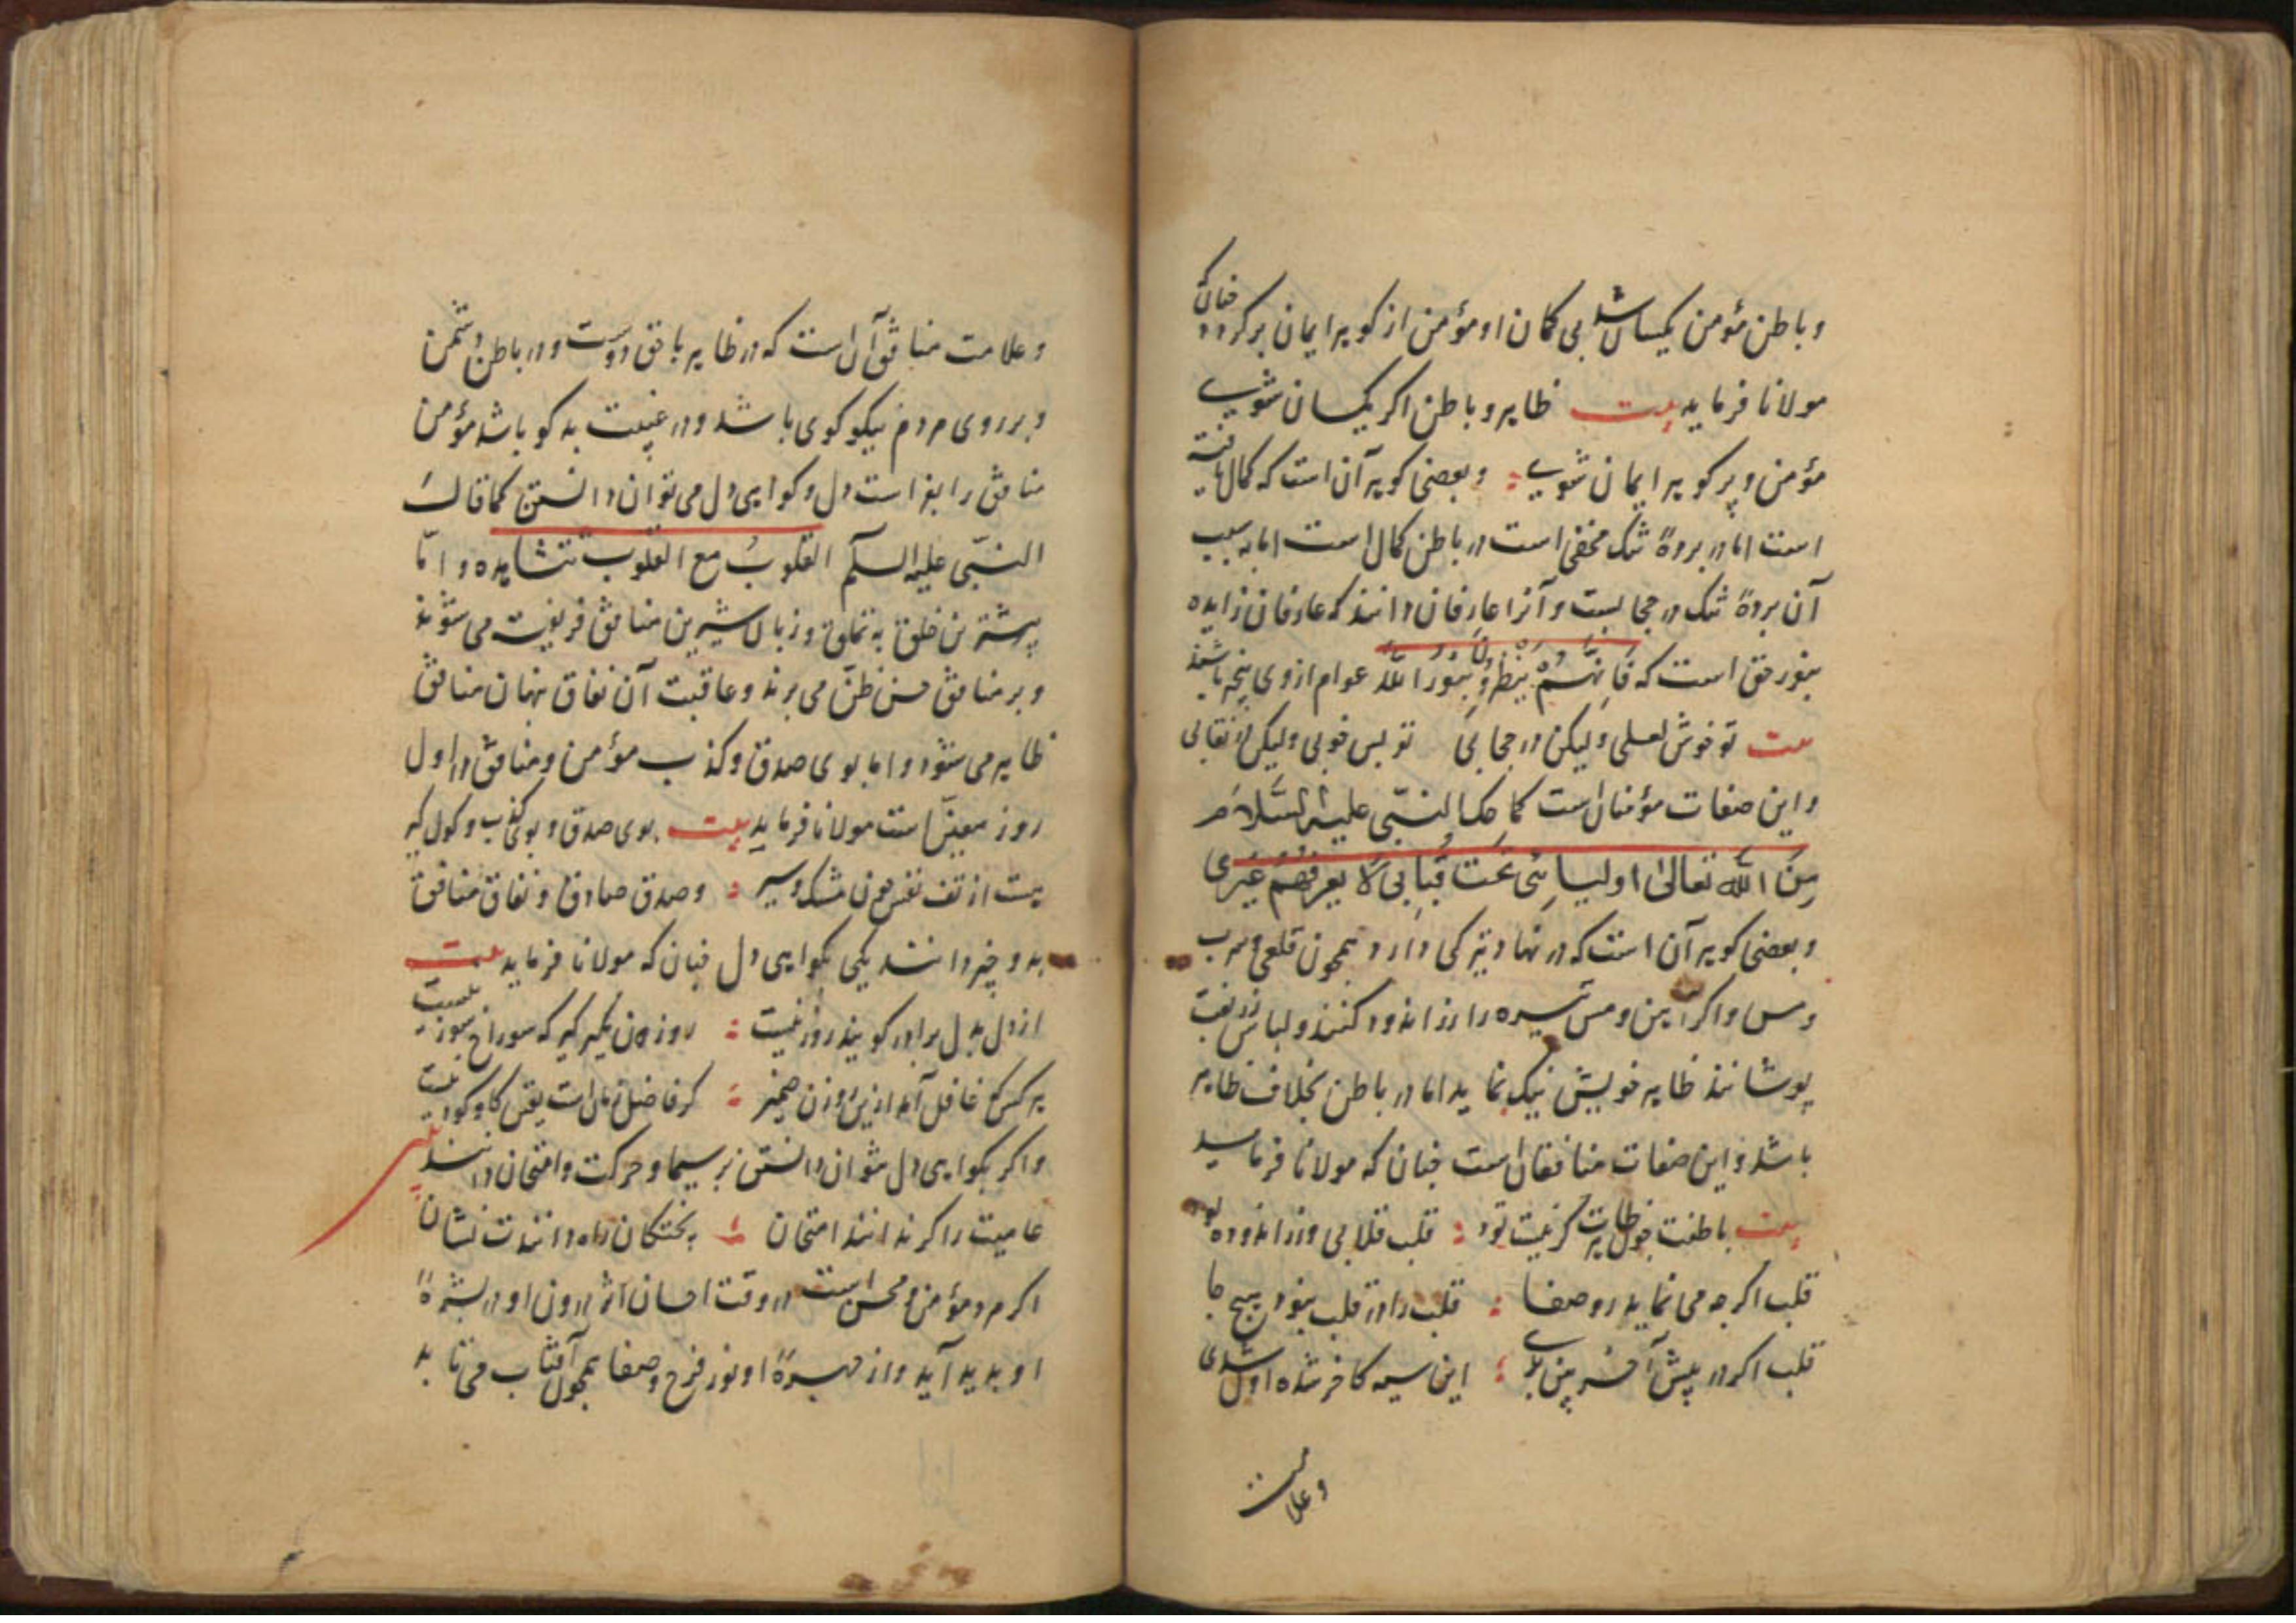 و باطن مؤمن یکسان شد بی کمان او مؤمن از کوهر ایمان بر کردد چنان که
مولانا فرماید بیت ظاهر و باطن اکر یکسان شوی
مؤمن و پر کوهر ایمان شوی و بعضی کوهر آن است که کمال یافته
است اما در بردهٔ شک مخفی است در باطن کمال است اما به سبب
آن بردهٔ شک در حجابست و آنرا عارفان دانند که عارفان زایده
بنور حق است که فَاِنَّهُمْ یَنْظُرُونَ بِنُورِ اللّٰه عوام ازوی بیخبر باشند
بیت تو خوش لعلی ولیکن در حجابی تو بس خوبی ولیکن در نقابی
و این صفات مؤمنان است کما حکی النبّی علیه السّلام
مِنَ اللّٰه تعالیٰ اولیائی تحت قبابی لا یعرفهم غیری
و بعضی کوهر آن است که در نهاد تیرکی دارد همچون قلعی و سرب
و مس و اکر آهن و مس تیره را زر اندود کنند و لباس زربفت
پوشانند ظاهر خویش نیک نماید اما در باطن بخلاف ظاهر
باشد و این صفات منافقان است جنان که مولانا فرماید
بیت باطنت چون ظاهرت کر نیست تو قلب قلابی و زر اندوده
قلب اکرجه می نماید رو صفا قلب را در قلب نبود هیچ جا
قلب اکر در پیش آخر بین بدی این سیه کافر شده اول شدی
وعلامت
وعلامت منافق آن است که در ظاهر با حق دوست و در باطن دشمن
و بر روی مردم نیکو کوی باشد و در غیبت بد کو باشد مؤمن
منافق را بفراست دل و کواهی دل می توان دانستن کما قال
النبّی علیه السلّم القلوبُ مع القلوب تتشاهده و امّا
بیشترین خلق به تملق و زبان شیرین منافق فریفته می شوند
و بر منافق حسن ظنّ می برند و عاقبت آن نفاق پنهان منافق
ظاهر می شود و اما بوی صدق و کذب مؤمن و منافق در اول
روز معینّ است مولانا فرماید بیت بوی صدق و بوی کذب و کول کیر
هست از تف نفس چون مشک و سیر و صدق صادق و نفاق منافق
بدو چیز دانند یکی بکواهی دل جنان که مولانا فرماید بیت
از دل بدل برادر کویند روزنیست روزن مکیر کیر که سوراخ سوزنیست
هر کس که غافل آمد ازین روزن ضمیر کر فاضل زمان است یقین کاو کودنیست
واکر بکواهی دل نتوان دانستن بر سیما و حرکت و امتحان دانند بیت
عامیت را کر ندانند امتحان پختکان راه دانندت نشان
اکر مرد مؤمن و محسن است در وقت احسان اثر درون او در بشرهٔ
او بدید آید و از چهرهٔ او نور فرح و صفا همچون آفتاب می تابد